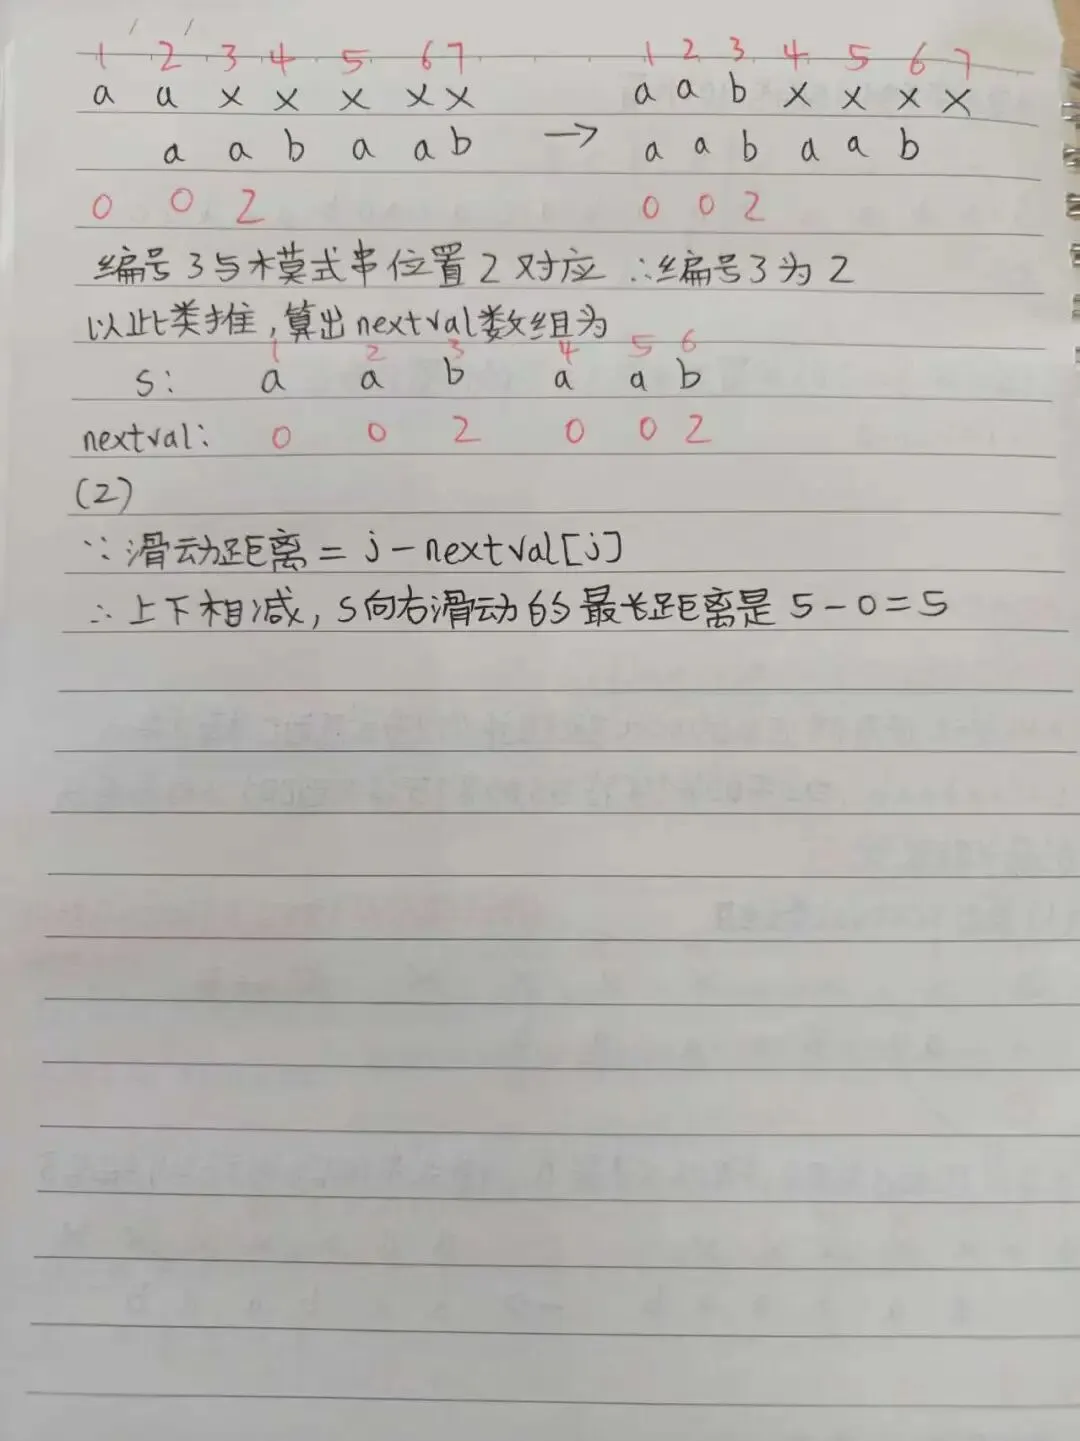 1 2 3 4 5 6 7 1 2 3 4 5 6 7
a a x x x x x a a b x x x x
a a b a a b → a a b a a b
0 0 2 0 0 2
编号3与模式串位置2对应 ∴编号3为2
以此类推,算出nextval数组为
1 2 3 4 5 6
s: a a b a a b
nextval: 0 0 2 0 0 2
(2)
∵滑动距离=j-nextval[j]
∴上下相减,S向右滑动的S最长距离是5-0=5